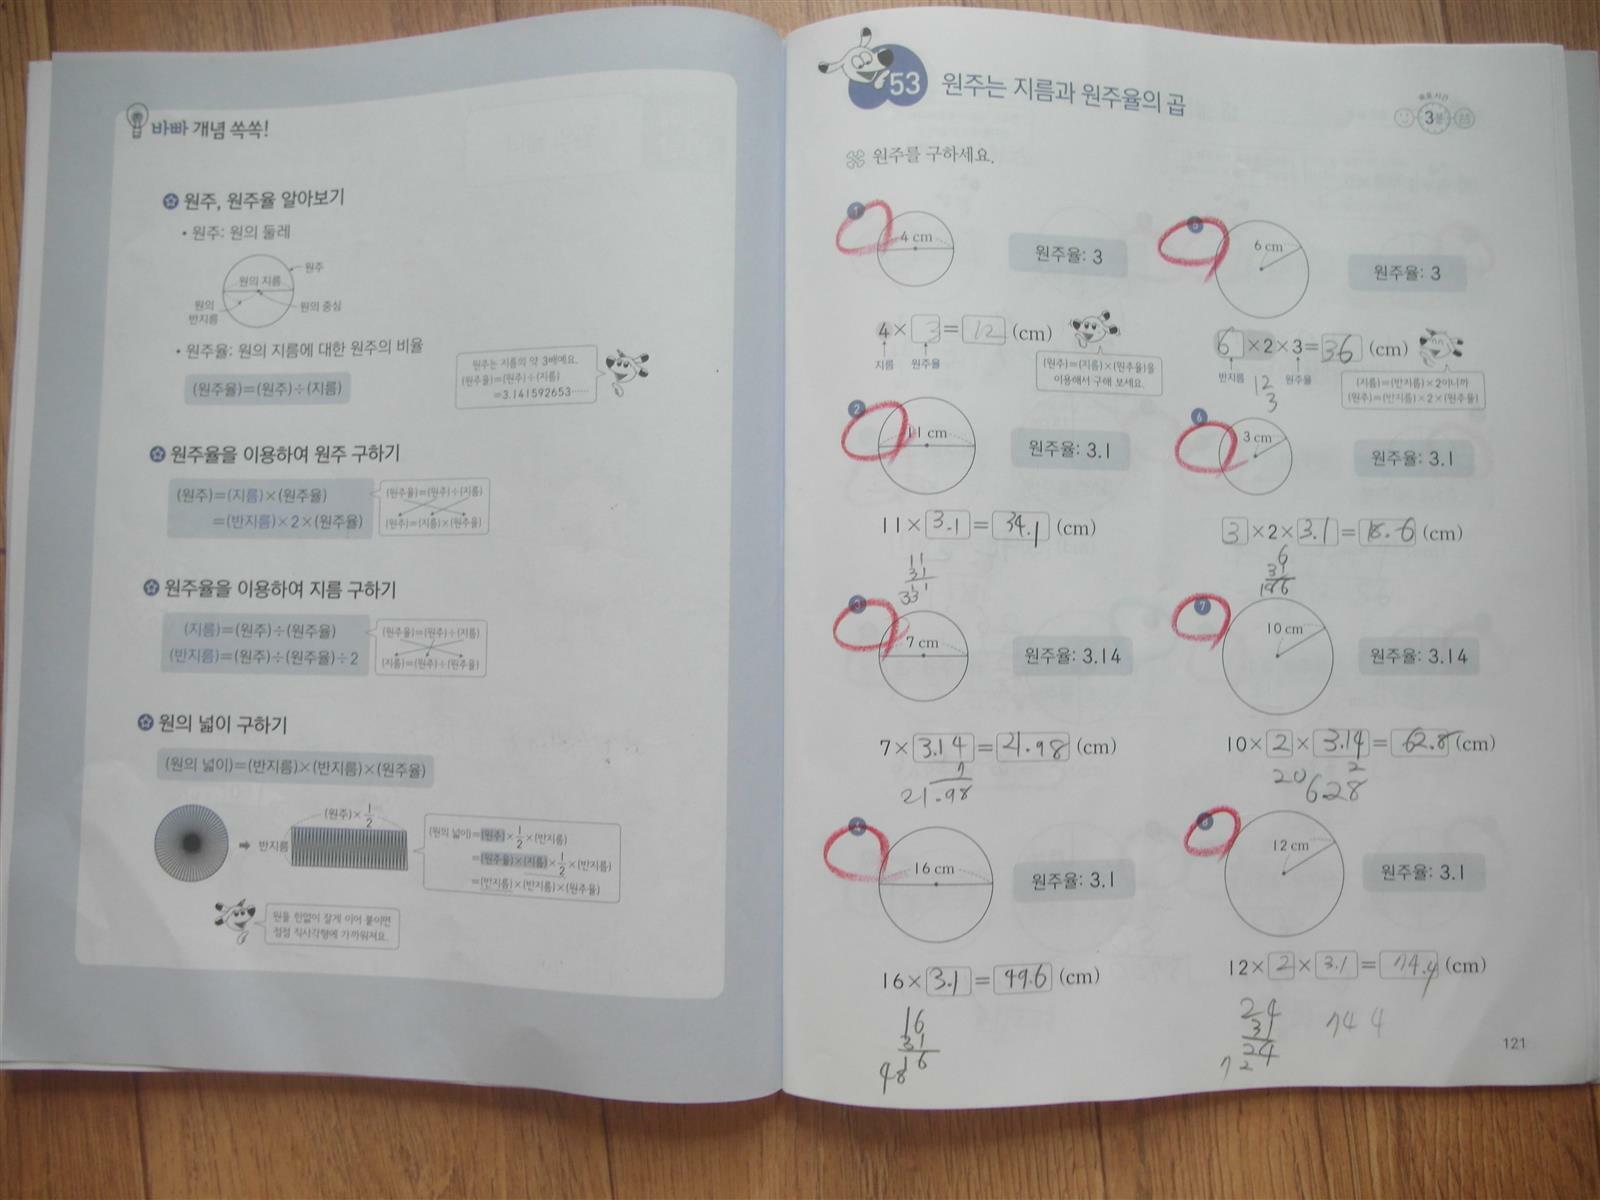 바빠 개념 쏙쏙!
원주, 원주율 알아보기
• 원주: 원의 둘레
원주
원의 지름
원의 반지름
원의 중심
• 원주율: 원의 지름에 대한 원주의 비율
(원주율)=(원주)÷(지름)
원주는 지름의 약 3배예요.
(원주율)=(원주)÷(지름)
=3.141592653······
원주율을 이용하여 원주 구하기
(원주)=(지름)×(원주율)
=(반지름)×2×(원주율)
(원주율)=(원주)÷(지름)
(원주)=(지름)×(원주율)
원주율을 이용하여 지름 구하기
(지름)=(원주)÷(원주율)
(반지름)=(원주)÷(원주율)÷2
(원주율)=(원주)÷(지름)
(지름)=(원주)÷(원주율)
원의 넓이 구하기
(원의 넓이)=(반지름)×(반지름)×(원주율)
(원주)×1/2
반지름
(원의 넓이)=(원주)×1/2×(반지름)
=(원주율)×(지름)×1/2×(반지름)
=(반지름)×(반지름)×(원주율)
원을 한없이 잘게 이어 붙이면
점점 직사각형에 가까워져요.
53 원주는 지름과 원주율의 곱
3분
원주를 구하세요.
1
4 cm
원주율: 3
4×3=12 (cm)
지름 원주율
(원주)=(지름)×(원주율)을
이용해서 구해 보세요.
2
11 cm
원주율: 3.1
11×3.1=34.1 (cm)
11
31
11
33
3
7 cm
원주율: 3.14
7×3.14=21.98 (cm)
7
21.98
4
16 cm
원주율: 3.1
16×3.1=49.6 (cm)
16
31
16
48
5
6 cm
원주율: 3
6×2×3=36 (cm)
반지름 원주율
12
3
(지름)=(반지름)×2이니까
(원주)=(반지름)×2×(원주율)
6
3 cm
원주율: 3.1
3×2×3.1=18.6 (cm)
6
31
186
7
10 cm
원주율: 3.14
10×2×3.14=62.8 (cm)
2
20 628
8
12 cm
원주율: 3.1
12×2×3.1=74.4 (cm)
24
31
24
72
744
121